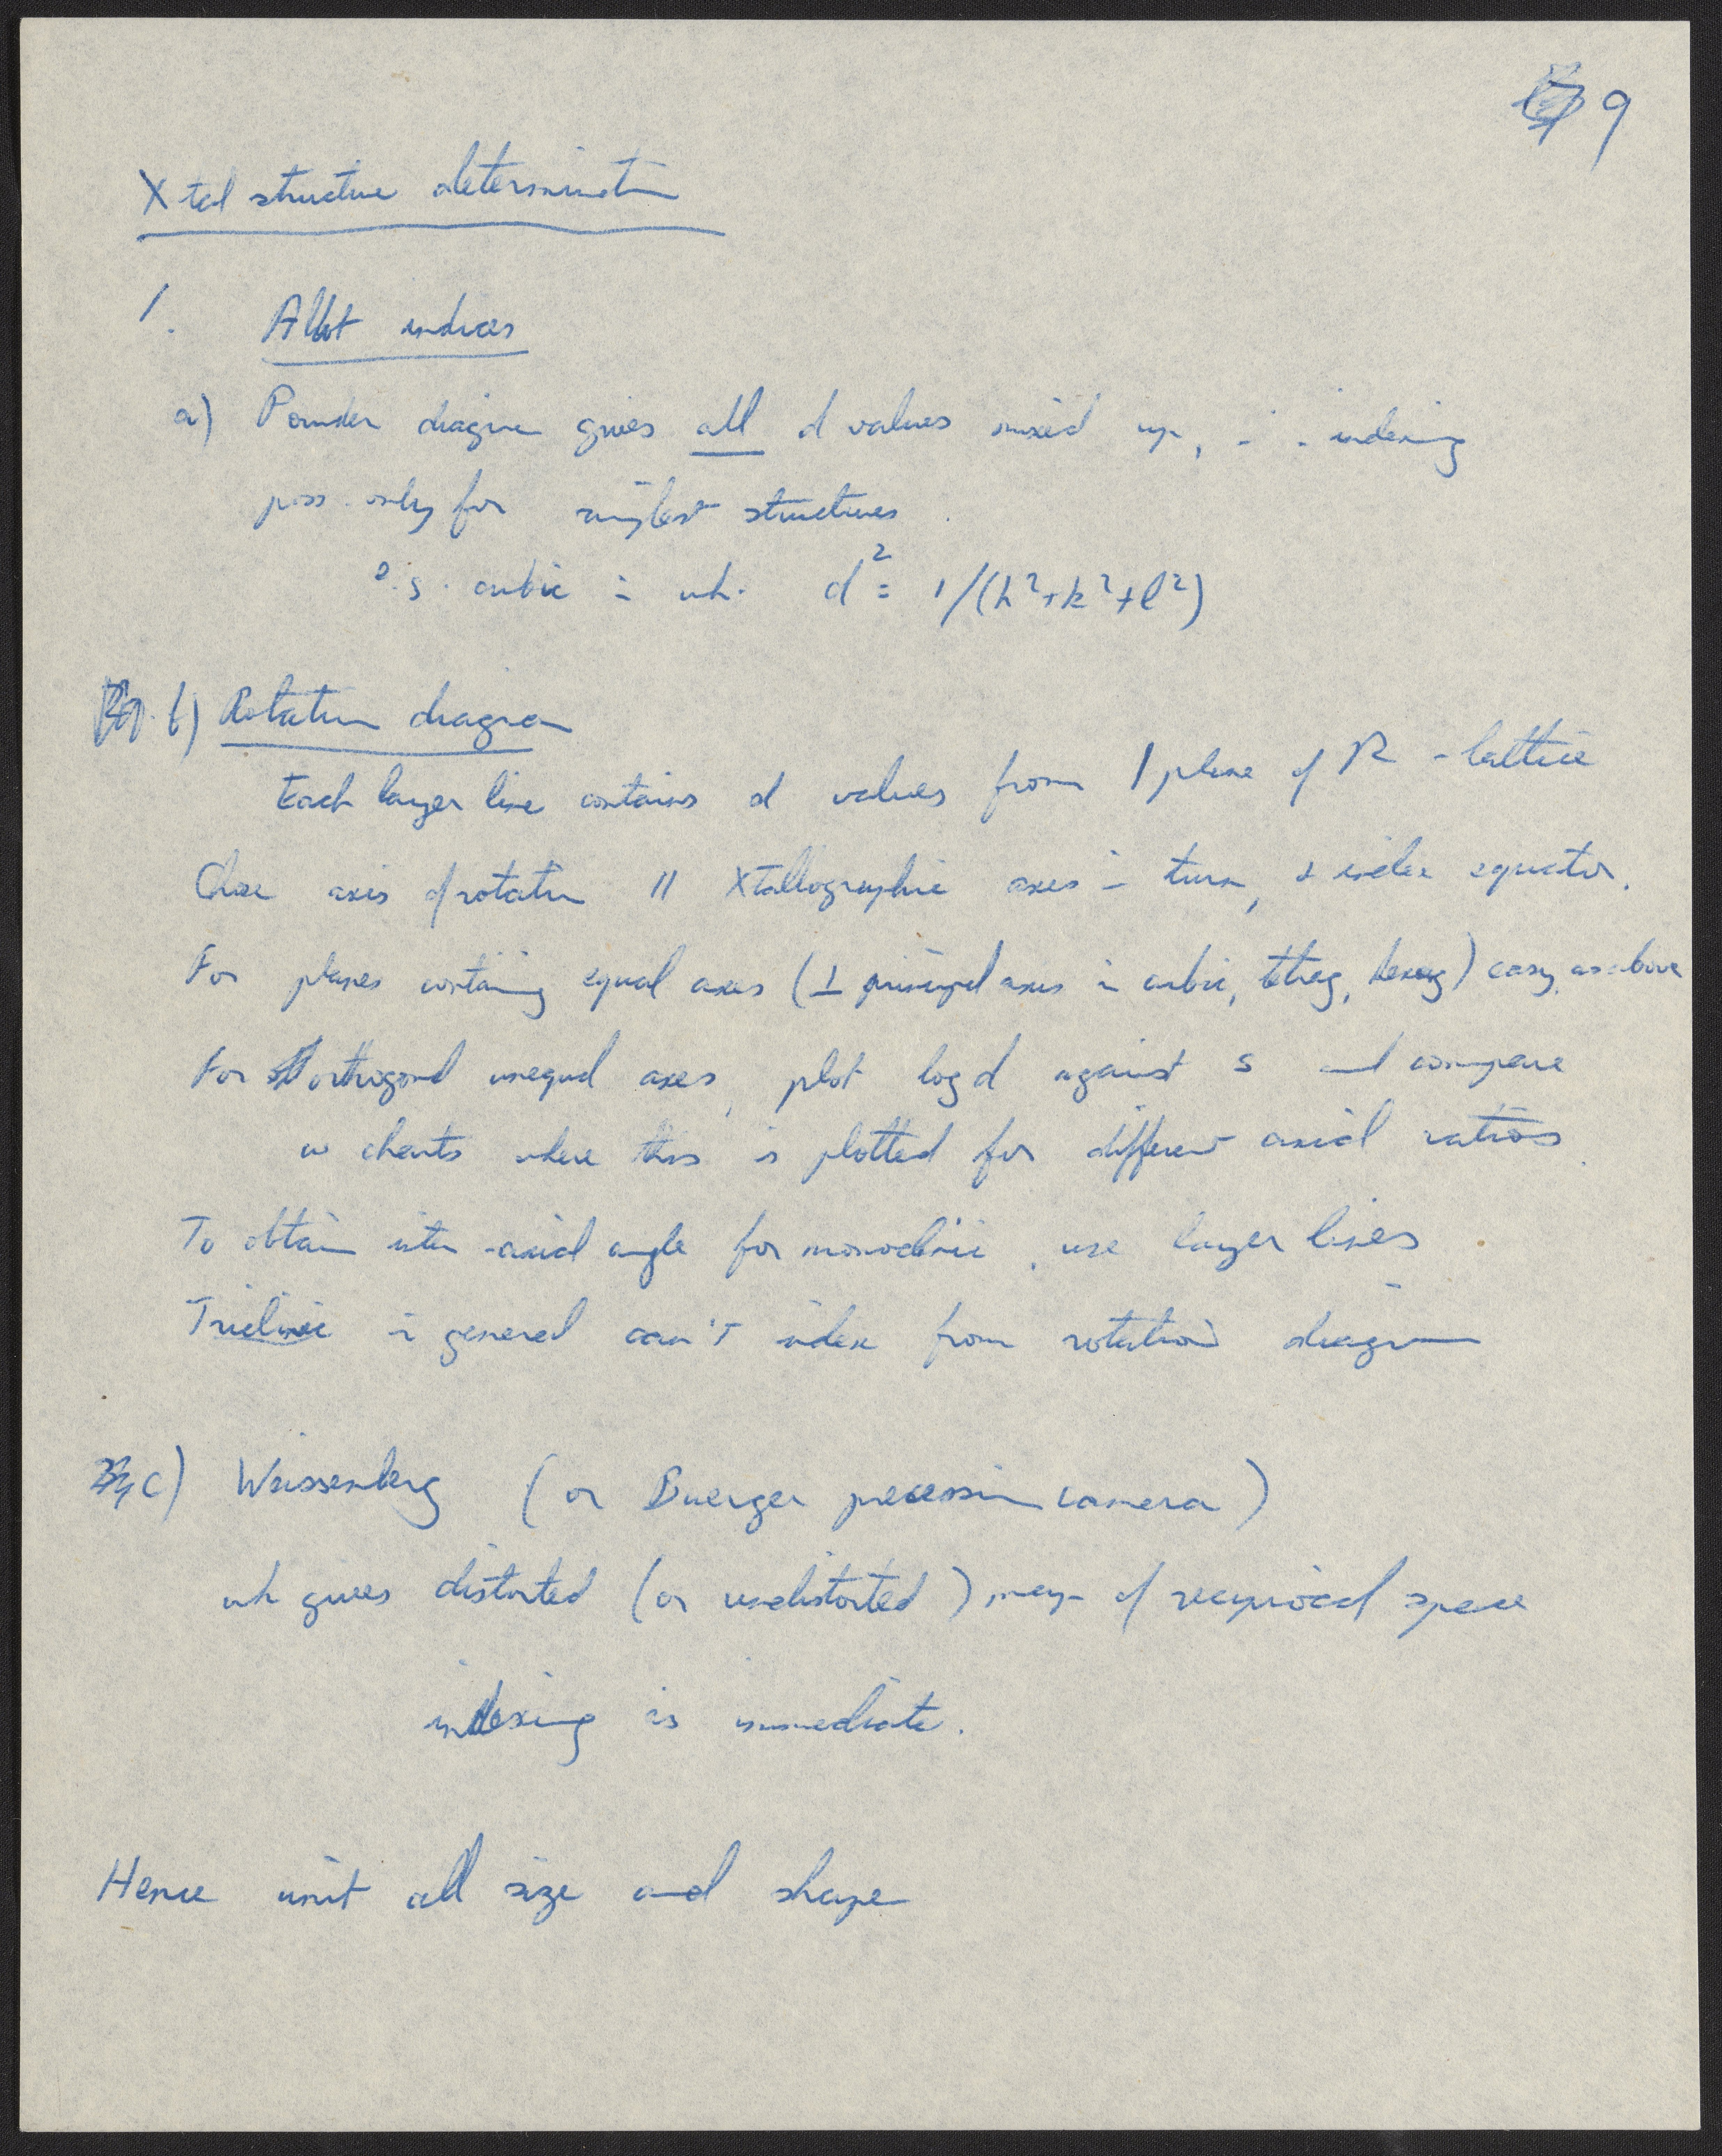 9
Xtal structure determination
1. Allot indices
a) Powder diagram gives all d values mixed up, ∴ indexing
poss. only for simplest structures.
e.g. cubic in wh. d² = 1/(h²+k²+l²)
b) Rotation diagram
Each layer line contains d values from 1 plane of R-lattice
Chose axis of rotation // Xtallographic axes in turn, & index equator.
For planes containing equal axes (⊥ principal axes in cubic, tetrag, hexag) easy, as above
For orthogonal unequal axes, plot log d against s and compare
w charts where this is plotted for different axial ratios.
To obtain inter-axial angle for monoclinic, use layer lines
Triclinic in general can't index from rotation diagram
c) Weissenberg (or Buerger precession camera)
wh gives distorted (or undistorted) map of reciprocal space
indexing is immediate.
Hence unit cell size and shape